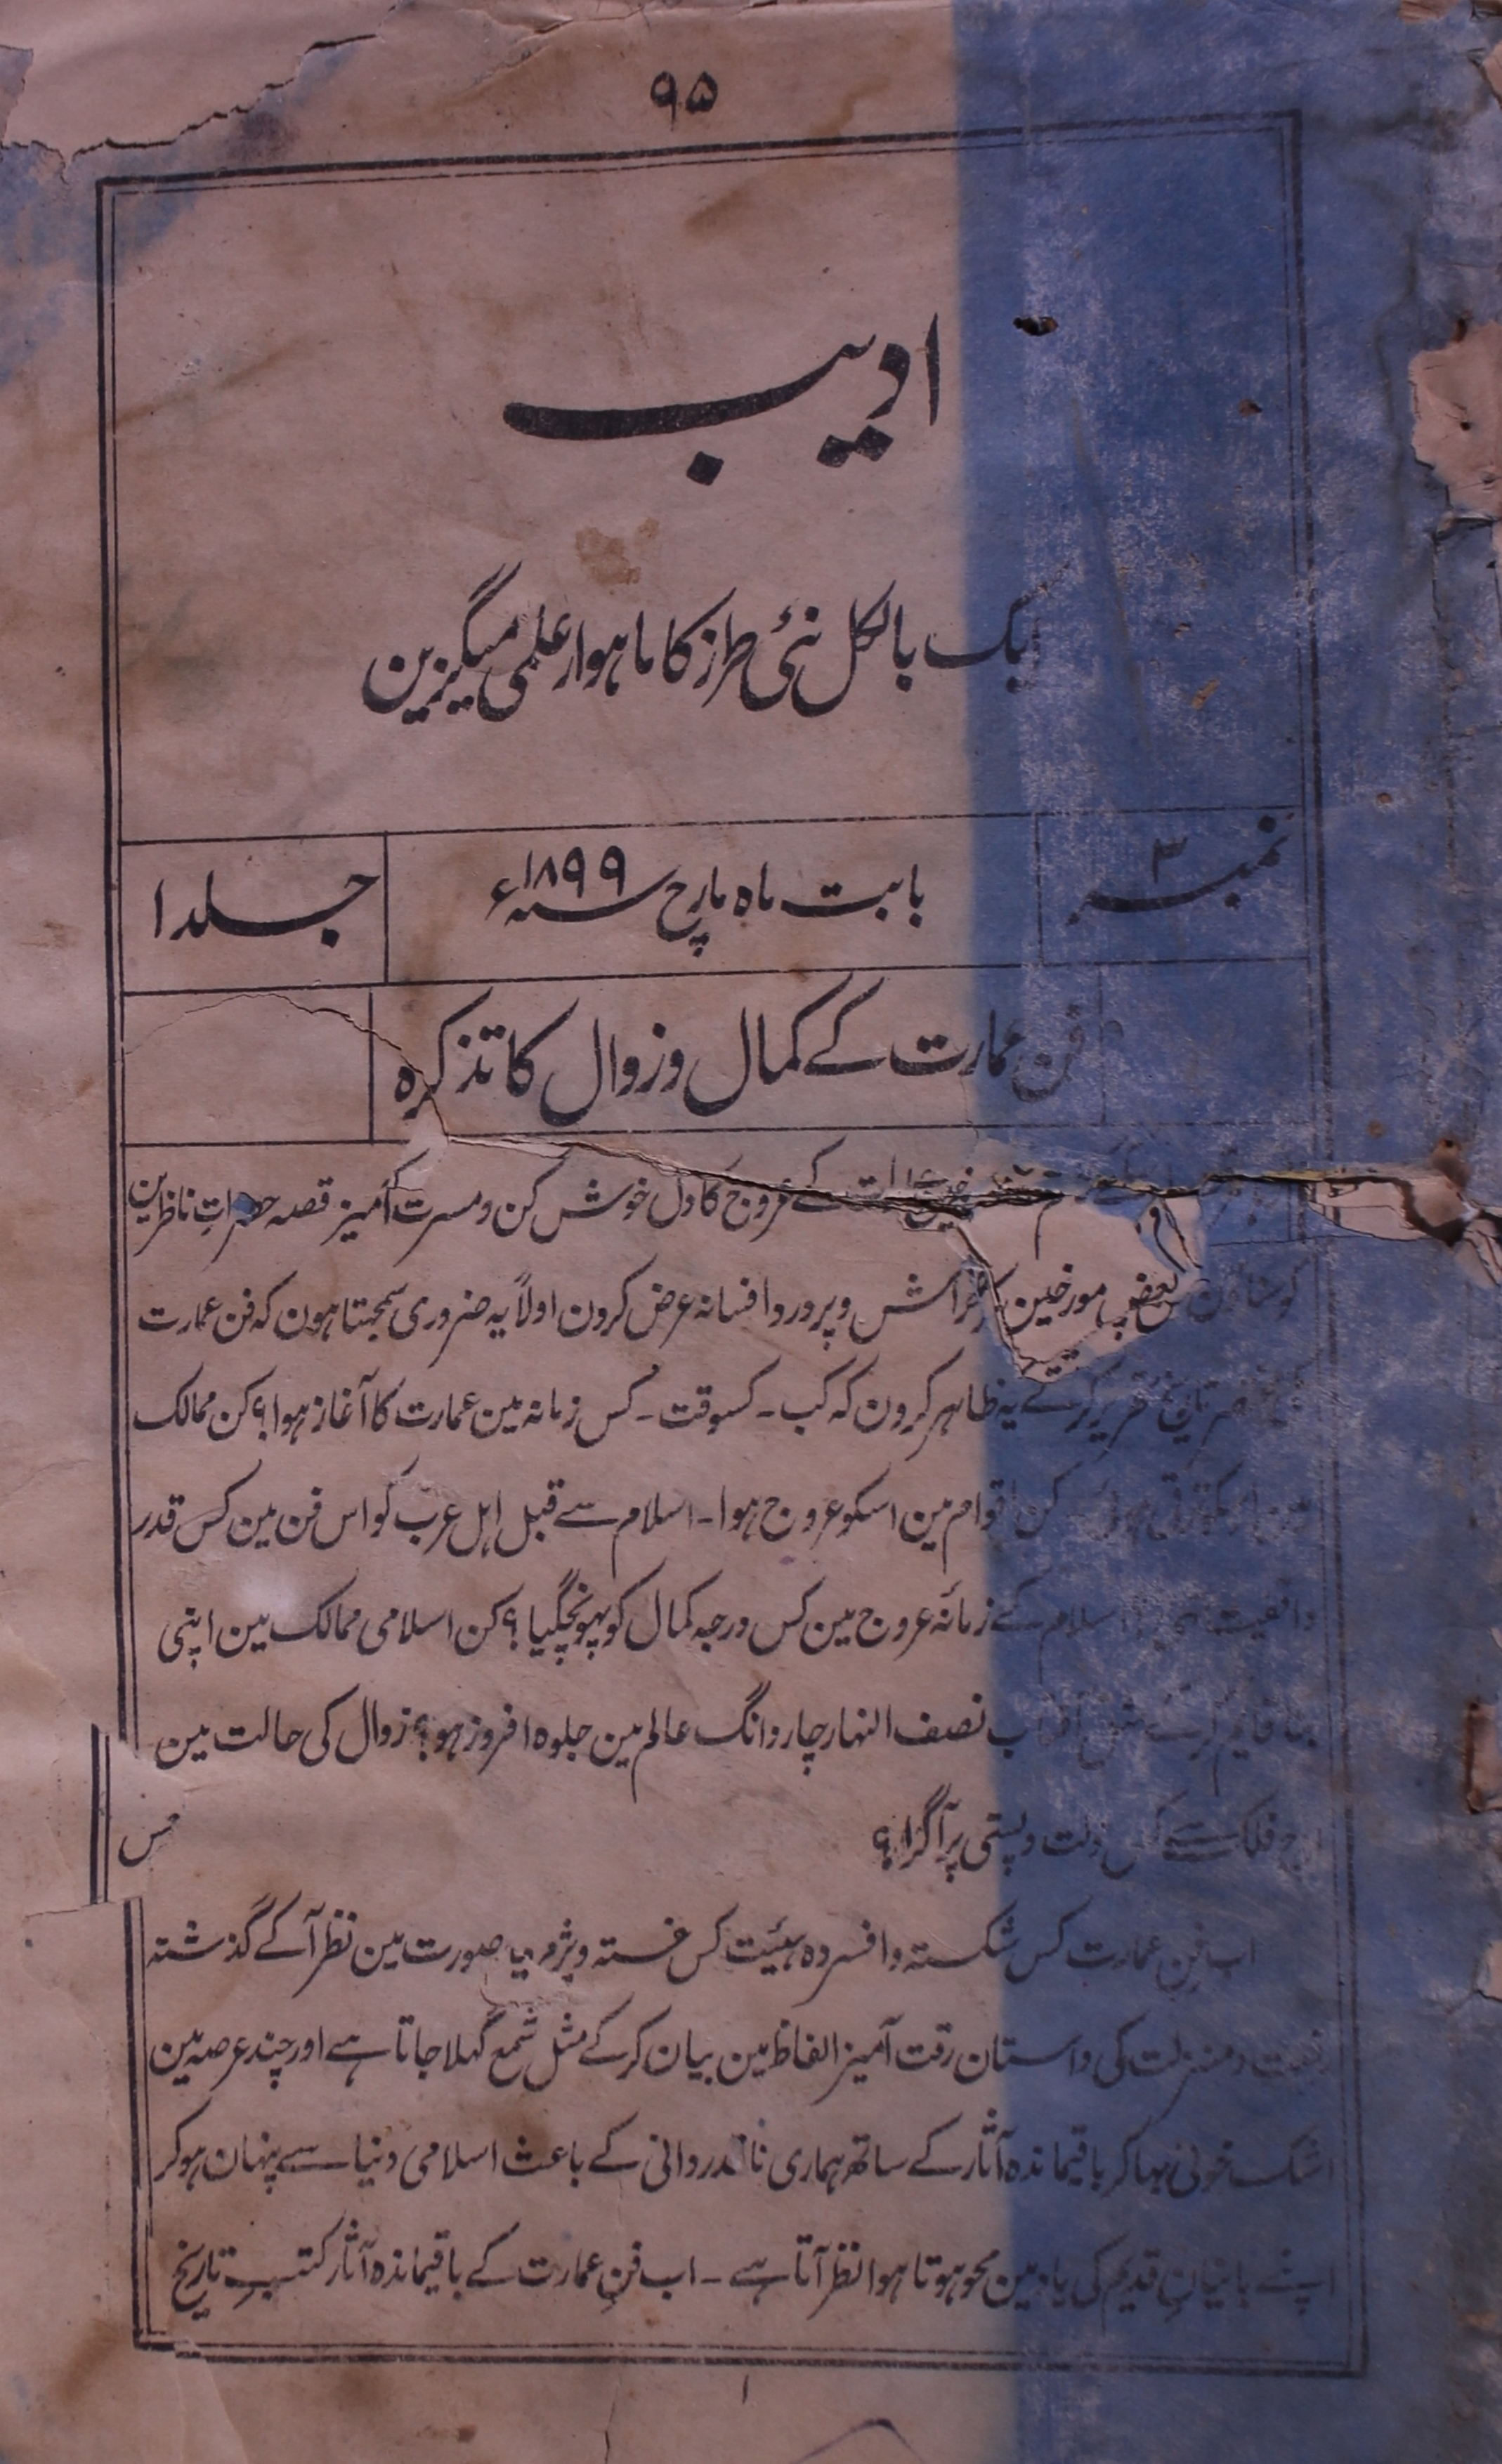 ۹۵
ادیب
ایک بالکل نئی طرز کا ماہوار علمی میگیزین
نمبر ۳
بابت ماہ مارچ سنہ ۱۸۹۹ء
جلد ۱
فن عمارت کے کمال و زوال کا تذکرہ
کے عروج کا دل خوش کن و مسرت آمیز قصہ حضرات ناظرین
بعض مورخین و پردرد افسانہ عرض کرون اولاً یہ ضروری سمجہتا ہون کہ فن عمارت
یہ ظاہر کرون کہ کب ۔ کسوقت ۔ کس زمانہ مین عمارت کا آغاز ہوا؟ کن ممالک
کن اقوام مین اسکو عروج ہوا ۔ اسلام سے قبل اہل عرب کو اس فن مین کس قدر
واقفیت اسلام کے زمانۂ عروج مین کس درجہ کمال کو پہونچگیا؟ کن اسلامی ممالک مین اپنی
نصف النہار چاردانگ عالم مین جلوہ افروز ہو؟ زوال کی حالت مین
فلک سے کس ذلت و پستی پر آگرا؟
اب فن عمارت کس شکستہ و افسردہ ہیئیت کس خستہ و پژمردہ صورت مین نظر آکے گذشتہ
و منزلت کی داستان رقت آمیز الفاظ مین بیان کرکے مثل شمع گہلا جاتا ہے اور چند عرصہ مین
اشک خونی بہا کر باقیماندہ آثار کے ساتھ ہماری ناقدردانی کے باعث اسلامی دنیا سے پنہان ہوکر
اپنے بانیان قدیم کی یاد مین محو ہوتا ہوا نظر آتا ہے ۔ اب فن عمارت کے باقیماندہ آثار کتب تاریخ
۱